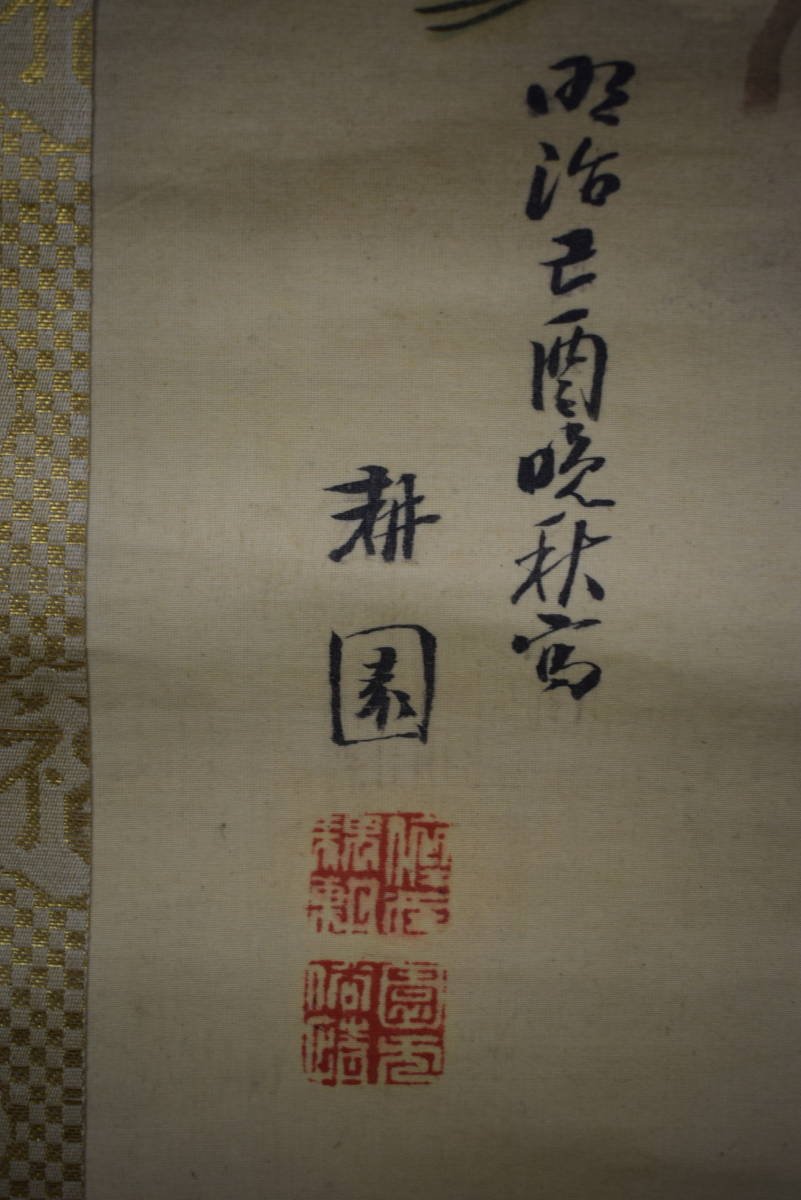 明治己酉晩秋写
耕園